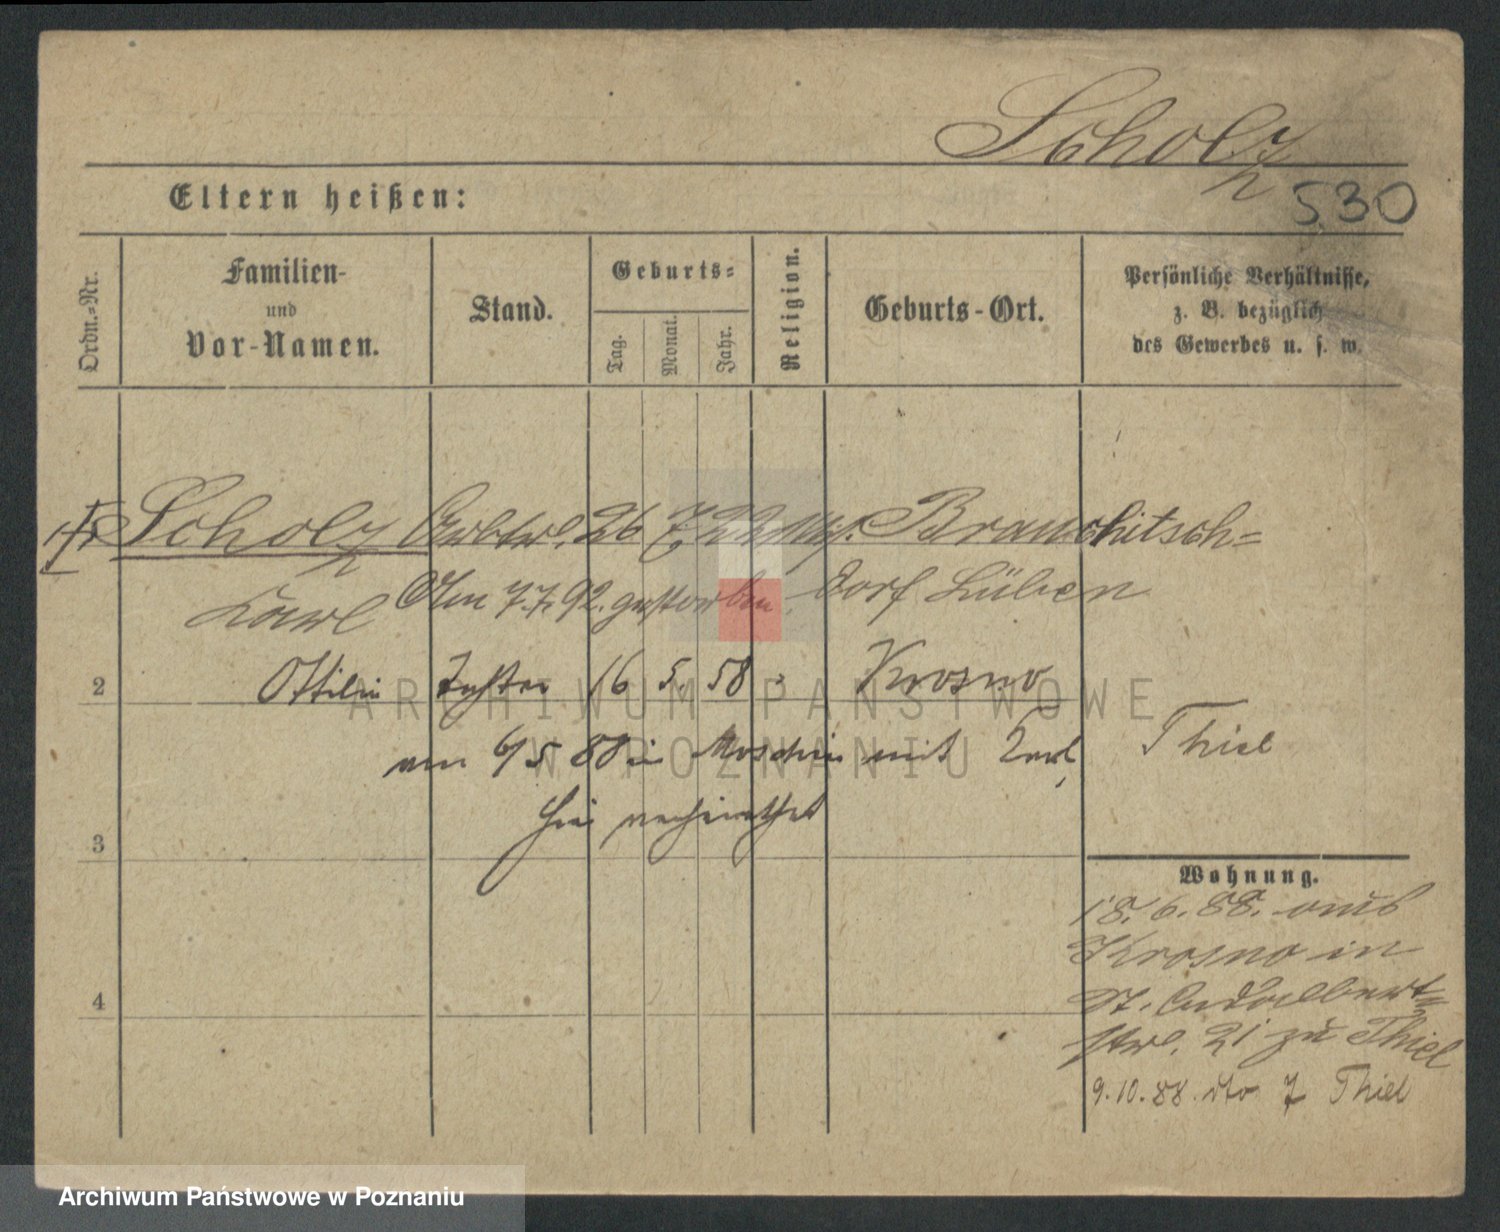 Scholz
530
Eltern heißen:
Ordn.-Nr.
Familien-
und
Vor-Namen.
Stand.
Geburts-
Tag.
Monat.
Jahr.
Religion.
Geburts-Ort.
Persönliche Verhältnisse,
z. B. bezüglich
des Gewerbes u. s. w.
Scholz Arbtr. 26 7 22 Brauchitsch-
Karl Am 7.7.92. gestorben. dorf Lüben
2 Ottilie Tochter 16 5. 58 Krosno
am 6/5 88 in Moschin mit Karl Thiel
hier verheirathet
3
Wohnung.
18. 6. 88. aus
Krosno in
St. Adalbert-
str. 21 zu Thiel
4
9.10.88. dto 7 Thiel
ARCHIWUM PAŃSTWOWE
W POZNANIU
Archiwum Państwowe w Poznaniu